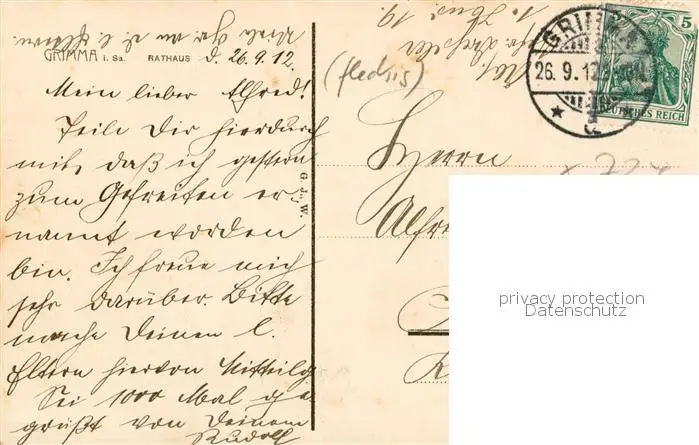 GRIMMA i. Sa. RATHAUS d. 26.9.12.
Mein lieber Alfred!
Teile Dir hierdurch
mit, daß ich gestern
zum Gefreiten er-
nannt worden
bin. Ich freue mich
sehr darüber. Bitte
mache Deinen l.
Eltern hiervon Mitteilg
Sei 1000 Mal ge-
grüßt von Deinem
Rudolf
G. J., W.
Herrn
GRIMMA
26. 9. 12
5
DEUTSCHES REICH
privacy protection
Datenschutz